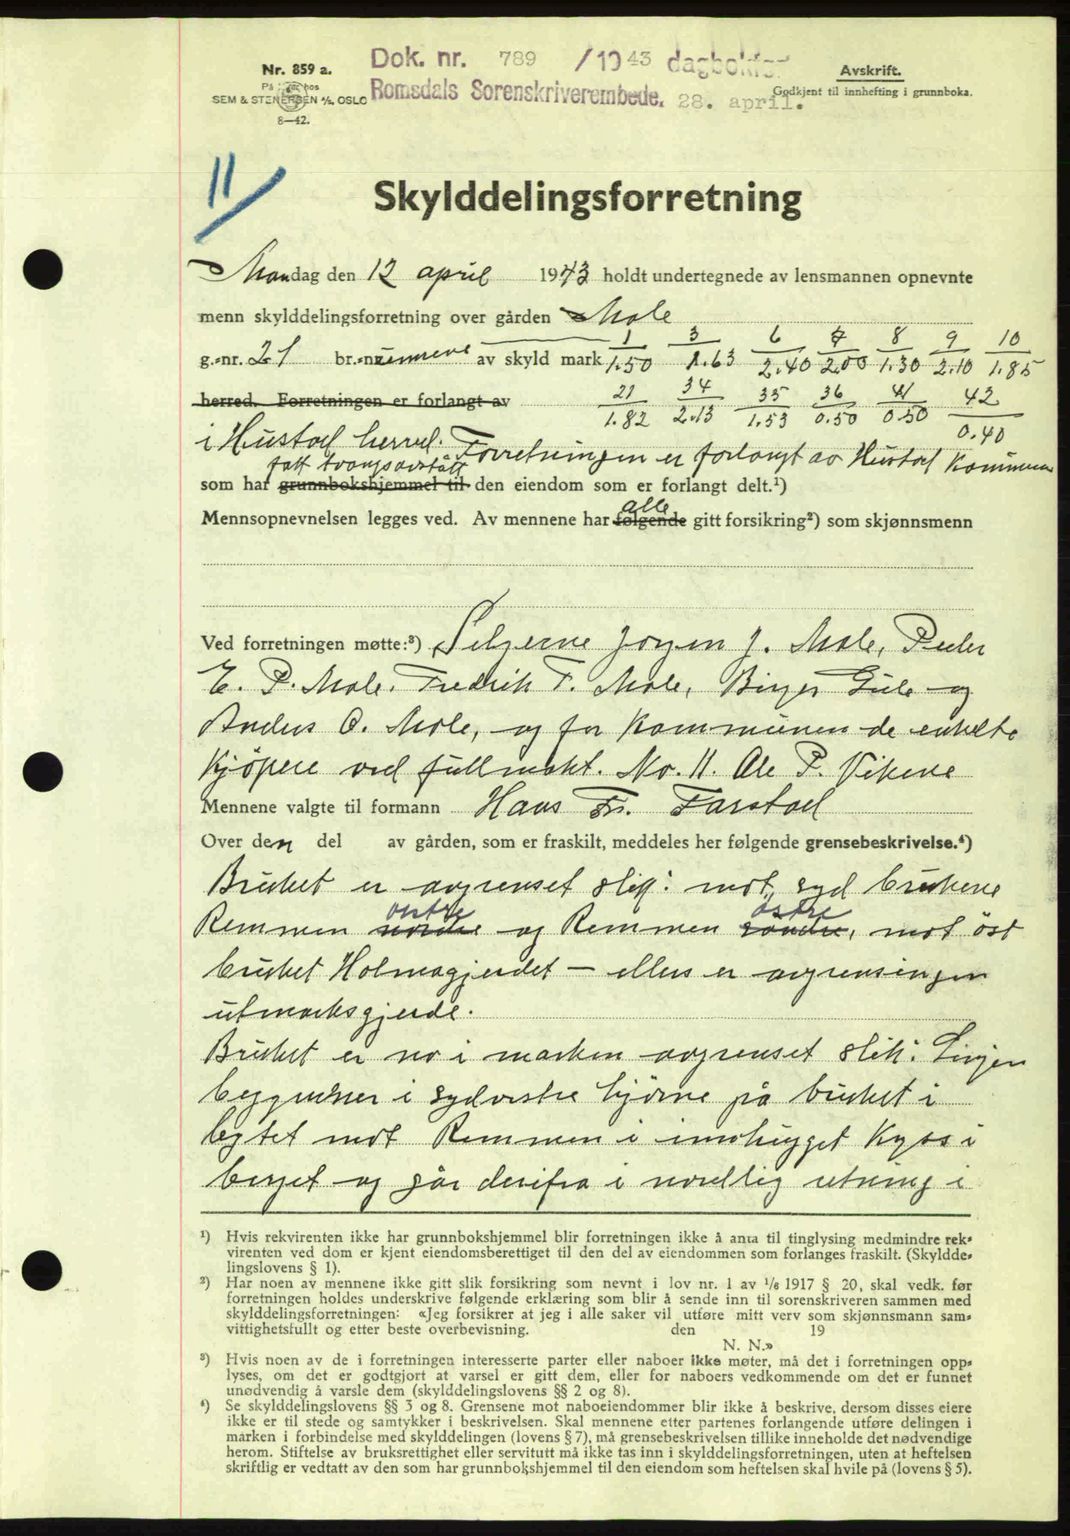 Nr. 859 a.
SEM & STENERSEN A/S, OSLO
8—42.
Dok. nr. 789 /1943 dagbokført
Romsdals Sorenskriverembede. 28. april.
Avskrift.
Godkjent til innhefting i grunnboka.
11
Skylddelingsforretning
Mandag den 12 april 1943 holdt undertegnede av lensmannen opnevnte
menn skylddelingsforretning over gården Mole
g.-nr. 21 br.-nr. av skyld mark 1/1.50 3/1.63 6/2.40 7/2.00 8/1.30 9/2.10 10/1.85
herred. Forretningen er forlangt av 21/1.82 34/2.13 35/1.53 36/0.50 41/0.50 42/0.40
i Hustad herred. Forretningen er forlangt av Hustad Kommune
fått tvangsavstått
som har grunnbokshjemmel til den eiendom som er forlangt delt.¹)
alle
Mennsopnevnelsen legges ved. Av mennene har følgende gitt forsikring²) som skjønnsmenn
Ved forretningen møtte:³) Selgerne Jørgen J. Mole, Peder
E. P. Mole, Fredrik F. Mole, Birger Gule og
Anders O. Mole, og for Kommunen de enkelte
Kjöpere ved fullmakt. No. 11. Ole P. Vikene
Mennene valgte til formann Hans Fr. Farstad
Over den del av gården, som er fraskilt, meddeles her følgende grensebeskrivelse.⁴)
Bruket er avgrenset slik: mot syd brukene
östre östre
Remmen nordre og Remmen söndre, mot öst
bruket Holmagjerdet — ellers er avgrensingen
utmarksgjerde.
Bruket er no i marken avgrenset slik: Linjen
begynner i sydvestre hjörne på bruket i
bytet mot Remmen i innhugget Kyss i
berget og går derifra i nordlig retning i
¹) Hvis rekvirenten ikke har grunnbokshjemmel blir forretningen ikke å anta til tinglysing medmindre rek-
virenten ved dom er kjent eiendomsberettiget til den del av eiendommen som forlanges fraskilt. (Skyldde-
lingslovens § 1).
²) Har noen av mennene ikke gitt slik forsikring som nevnt i lov nr. 1 av 1/6 1917 § 20, skal vedk. før
forretningen holdes underskrive følgende erklæring som blir å sende inn til sorenskriveren sammen med
skylddelingsforretningen: «Jeg forsikrer at jeg i alle saker vil utføre mitt verv som skjønnsmann sam-
vittighetsfullt og etter beste overbevisning. den 19
N. N.»
³) Hvis noen av de i forretningen interesserte parter eller naboer ikke møter, må det i forretningen opp-
lyses, om det er godtgjort at varsel er gitt dem, eller for naboers vedkommende om det er funnet
unødvendig å varsle dem (skylddelingslovens §§ 2 og 8).
⁴) Se skylddelingslovens §§ 3 og 8. Grensene mot naboeiendommer blir ikke å beskrive, dersom disses eiere
ikke er til stede og samtykker i beskrivelsen. Skal mennene etter partenes forlangende utføre delingen i
marken i forbindelse med skylddelingen (lovens § 7), må grensebeskrivelsen tillike inneholde det nødvendige
herom. Stiftelse av bruksrettighet eller servitutt må ikke tas inn i skylddelingsforretningen, uten at heftelsen
skriftlig er vedtatt av den som har grunnbokshjemmel til den eiendom som heftelsen skal hvile på (lovens § 5).